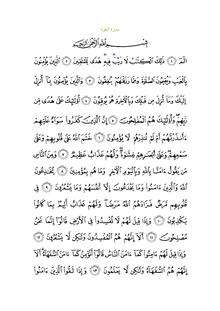 سورة البقرة
بِسْمِ اللَّهِ الرَّحْمَٰنِ الرَّحِيمِ
الٓمٓ ۝١ ذَٰلِكَ الْكِتَٰبُ لَا رَيْبَ ۛ فِيهِ ۛ هُدًى لِّلْمُتَّقِينَ ۝٢ الَّذِينَ يُؤْمِنُونَ
بِالْغَيْبِ وَيُقِيمُونَ الصَّلَوٰةَ وَمِمَّا رَزَقْنَٰهُمْ يُنفِقُونَ ۝٣ وَالَّذِينَ يُؤْمِنُونَ بِمَا أُنزِلَ
إِلَيْكَ وَمَا أُنزِلَ مِن قَبْلِكَ وَبِالْءَاخِرَةِ هُمْ يُوقِنُونَ ۝٤ أُولَٰئِكَ عَلَىٰ هُدًى مِّن
رَّبِّهِمْ وَأُولَٰئِكَ هُمُ الْمُفْلِحُونَ ۝٥ إِنَّ الَّذِينَ كَفَرُوا سَوَاءٌ عَلَيْهِمْ
ءَأَنذَرْتَهُمْ أَمْ لَمْ تُنذِرْهُمْ لَا يُؤْمِنُونَ ۝٦ خَتَمَ اللَّهُ عَلَىٰ قُلُوبِهِمْ وَعَلَىٰ
سَمْعِهِمْ وَعَلَىٰ أَبْصَٰرِهِمْ غِشَٰوَةٌ وَلَهُمْ عَذَابٌ عَظِيمٌ ۝٧ وَمِنَ النَّاسِ
مَن يَقُولُ ءَامَنَّا بِاللَّهِ وَبِالْيَوْمِ الْءَاخِرِ وَمَا هُم بِمُؤْمِنِينَ ۝٨ يُخَٰدِعُونَ
اللَّهَ وَالَّذِينَ ءَامَنُوا وَمَا يَخْدَعُونَ إِلَّا أَنفُسَهُمْ وَمَا يَشْعُرُونَ ۝٩ فِي
قُلُوبِهِم مَّرَضٌ فَزَادَهُمُ اللَّهُ مَرَضًا وَلَهُمْ عَذَابٌ أَلِيمٌ بِمَا كَانُوا
يَكْذِبُونَ ۝١٠ وَإِذَا قِيلَ لَهُمْ لَا تُفْسِدُوا فِي الْأَرْضِ قَالُوا إِنَّمَا نَحْنُ
مُصْلِحُونَ ۝١١ أَلَا إِنَّهُمْ هُمُ الْمُفْسِدُونَ وَلَٰكِن لَّا يَشْعُرُونَ ۝١٢
وَإِذَا قِيلَ لَهُمْ ءَامِنُوا كَمَا ءَامَنَ النَّاسُ قَالُوا أَنُؤْمِنُ كَمَا ءَامَنَ السُّفَهَاءُ أَلَا
إِنَّهُمْ هُمُ السُّفَهَاءُ وَلَٰكِن لَّا يَعْلَمُونَ ۝١٣ وَإِذَا لَقُوا الَّذِينَ ءَامَنُوا